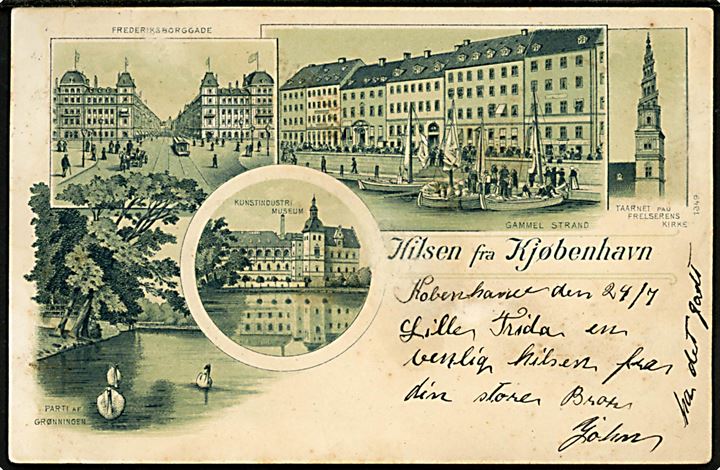 FREDERIKSBORGGADE
KUNSTINDUSTRI
MUSEUM
GAMMEL STRAND
TAARNET PAA
FRELSERENS
KIRKE
1849
PARTI AF
GRØNNINGEN
Hilsen fra Kjøbenhavn
København den 24/7
Lille Frida en
venlig hilsen fra
din store Bror
John
ha det godt